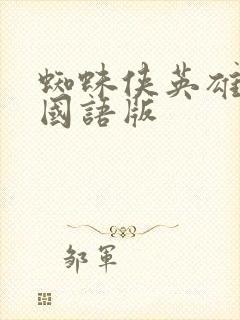 蜘蛛俠英雄
國語版
邹軍